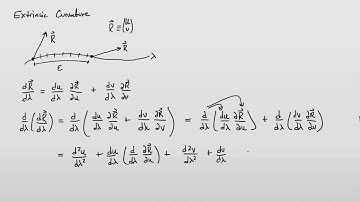 Extrinsic Curvature
R⃗ ≡ (u v)
R⃗ R⃗ λ
ε
dR⃗/dλ = du/dλ ∂R⃗/∂u + dv/dλ ∂R⃗/∂v
d/dλ (dR⃗/dλ) = d/dλ (du/dλ ∂R⃗/∂u + dv/dλ ∂R⃗/∂v) = d/dλ (du/dλ ∂R⃗/∂u) + d/dλ (dv/dλ ∂R⃗/∂v)
= d²u/dλ² + du/dλ (d/dλ ∂R⃗/∂u) + d²v/dλ² + dv/dλ